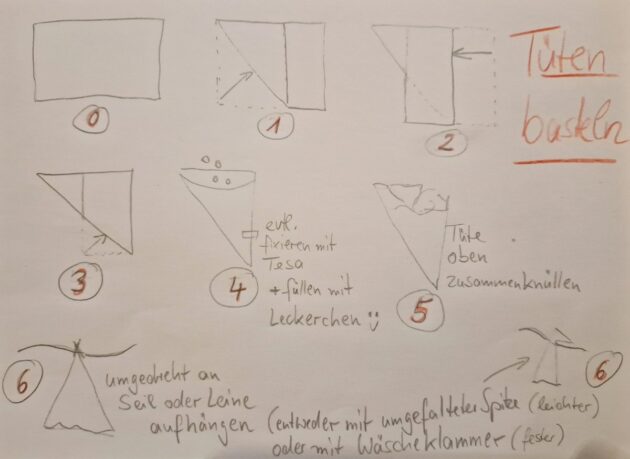 Tüten
basteln
0
1
2
3
4
evtl.
fixieren mit
Tesa
+ füllen mit
Leckerchen :)
5
Tüte
oben
zusammenknüllen
6
umgedreht an
Seil oder Leine
aufhängen (entweder mit umgefalteter Spitze (leichter)
oder mit Wäscheklammer (fester)
6